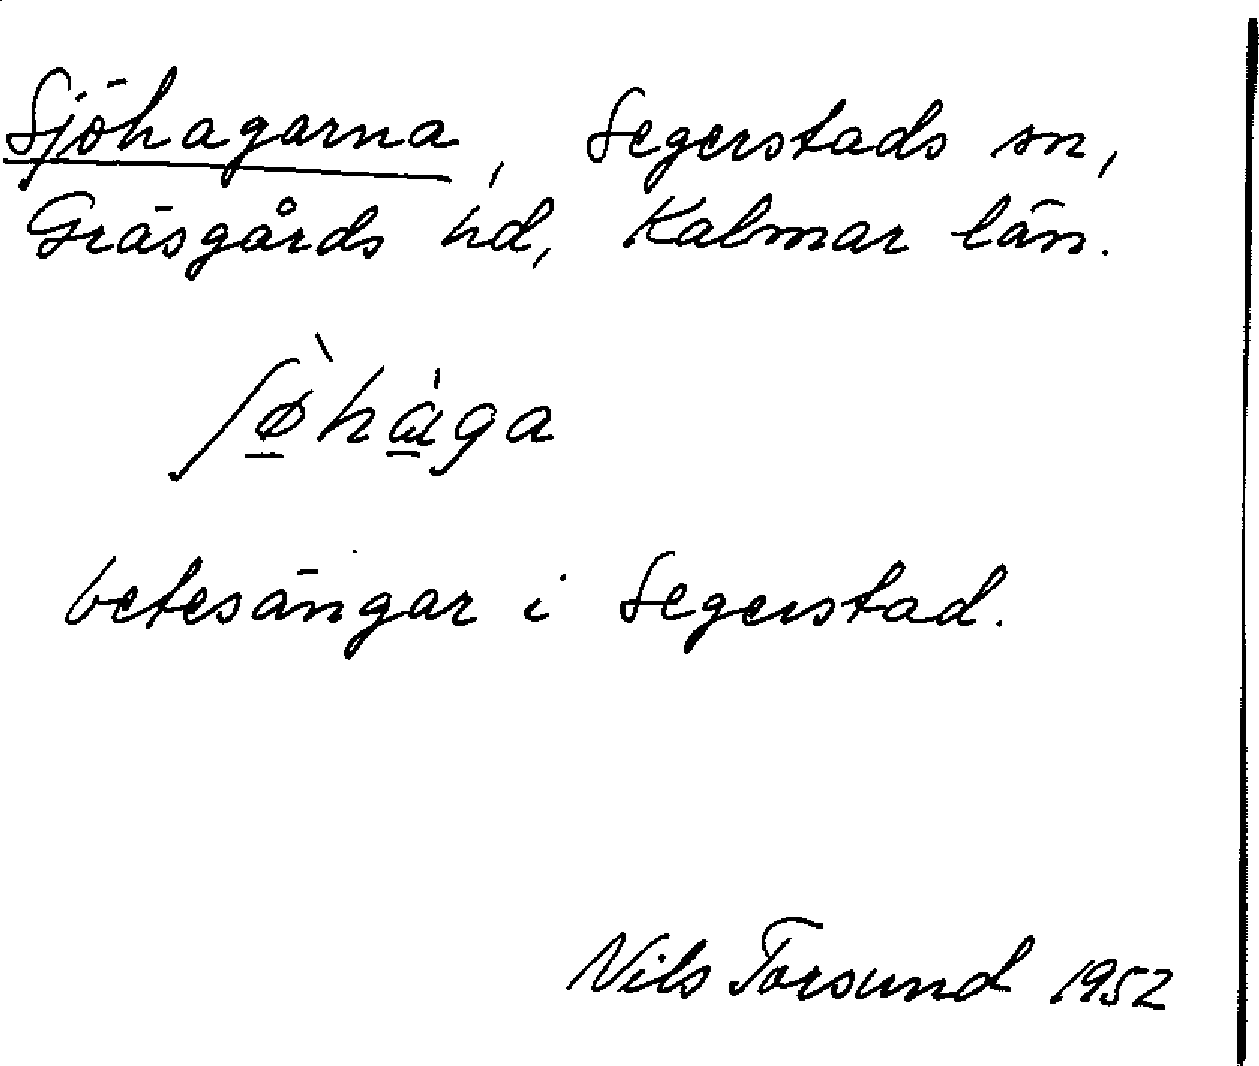 Sjöhagarna, Segerstads sn,
Gräsgårds hd, Kalmar län.
ʃø̠̀hɑ̠̍ga
betesängar i Segerstad.
Nils Torsund 1952